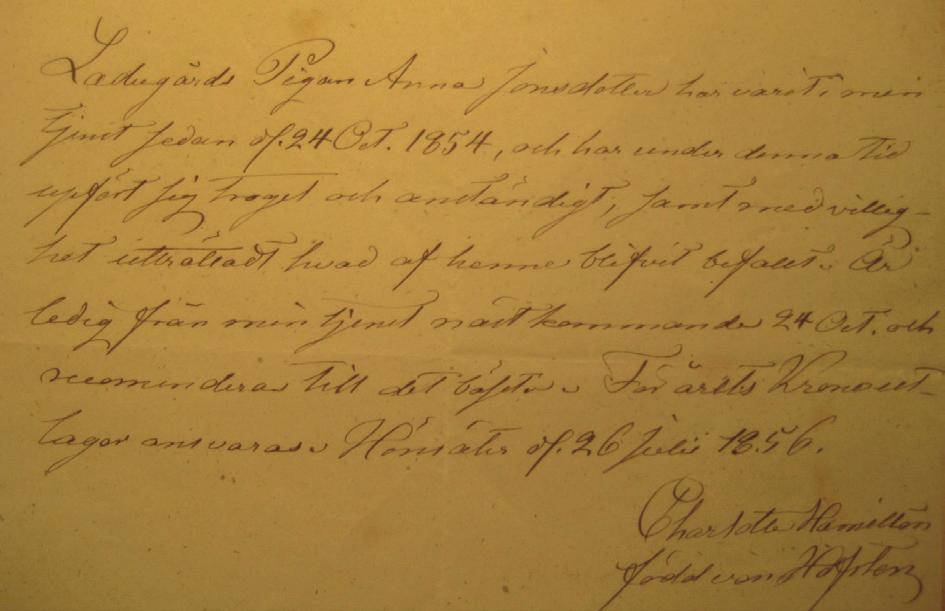 Ladugårds Pigan Anna Jonsdotter har varit i min
tjenst sedan d. 24 Oct. 1854, och har under denna tid
upfört sig troget och anständigt, samt med villig-
het uträttadt hvad af henne blifvit befallt. Är
ledig från min tjenst nästkommande 24 Oct. och
recomenderas till det bästa. För årets Kronout-
lagor ansvaras. Hönsäter d. 26 Julii 1856.
Charlotte Hamilton
född von Hofsten